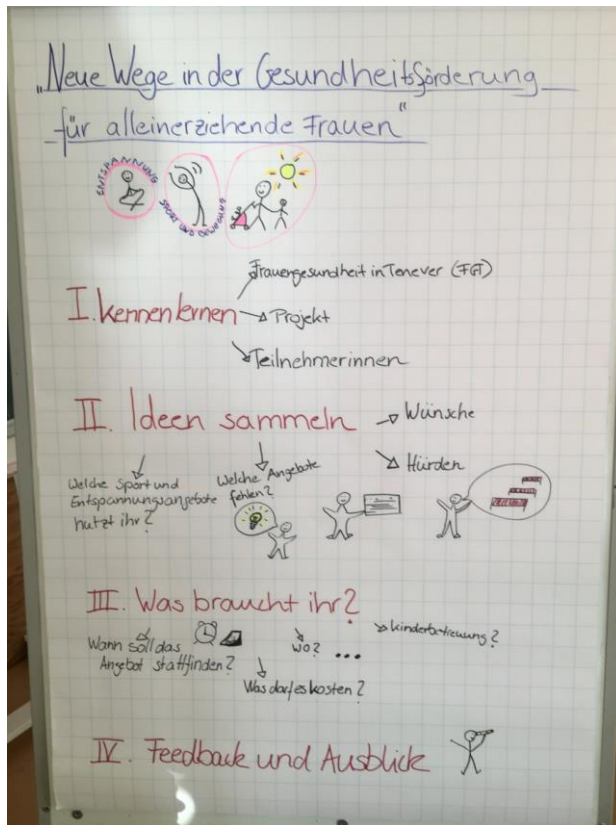 „Neue Wege in der Gesundheitsförderung
für alleinerziehende Frauen“
ENTSPANNUNG
SPORT UND BEWEGUNG
I. kennenlernen
Frauengesundheit in Tenever (FGT)
Projekt
Teilnehmerinnen
II. Ideen sammeln
Wünsche
Hürden
Welche Sport und
Entspannungsangebote
nutzt ihr?
Welche Angebote
fehlen?
III. Was braucht ihr?
Wann soll das
Angebot stattfinden?
Wo?
...
kinderbetreuung?
Was darf es kosten?
IV. Feedback und Ausblick